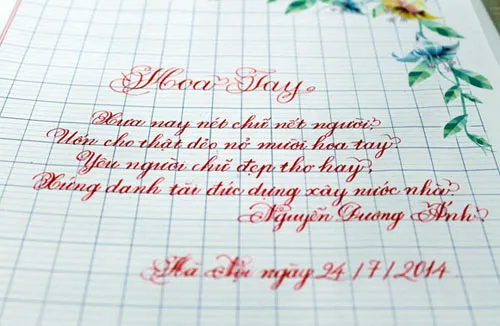 Hoa Tay.
Xưa nay nét chữ nết người,
Uốn cho thật dẻo nở mười hoa tay
Yêu người chữ đẹp thơ hay,
Xứng danh tài đức dựng xây nước nhà.
Nguyễn Dương Ánh
Hà Nội ngày 24/7/2014